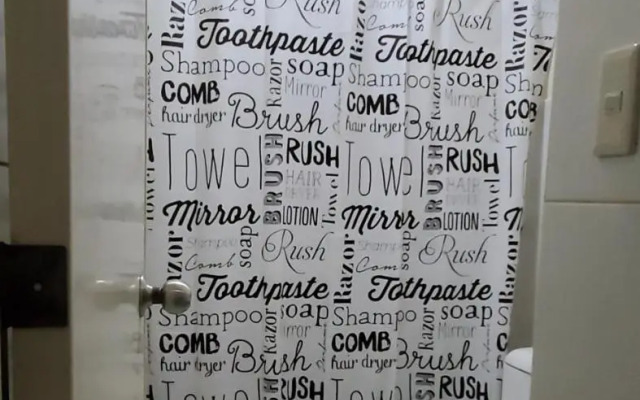 Comb Rush Comb soap Rush
Razor Toothpaste Razor Toothpaste Razor
Shampoo soap Shampoo soap
COMB Razor Mirror COMB Razor Mirror
hair dryer Brush hair dryer Brush
Towel BRUSH RUSH Towel BRUSH RUSH
HAIR DRYER Towel HAIR DRYER Towel
Mirror LOTION Mirror LOTION
Razor Shampoo soap Rush Razor Shampoo soap Rush Razor
Comb Comb
Toothpaste Tothpaste
Shampoo soap Shampo soap
COMB Razor Mirror COMB Razor Mirror
hair dryer Brush hair dryer Brush
Towel RUSH Towel RUSH